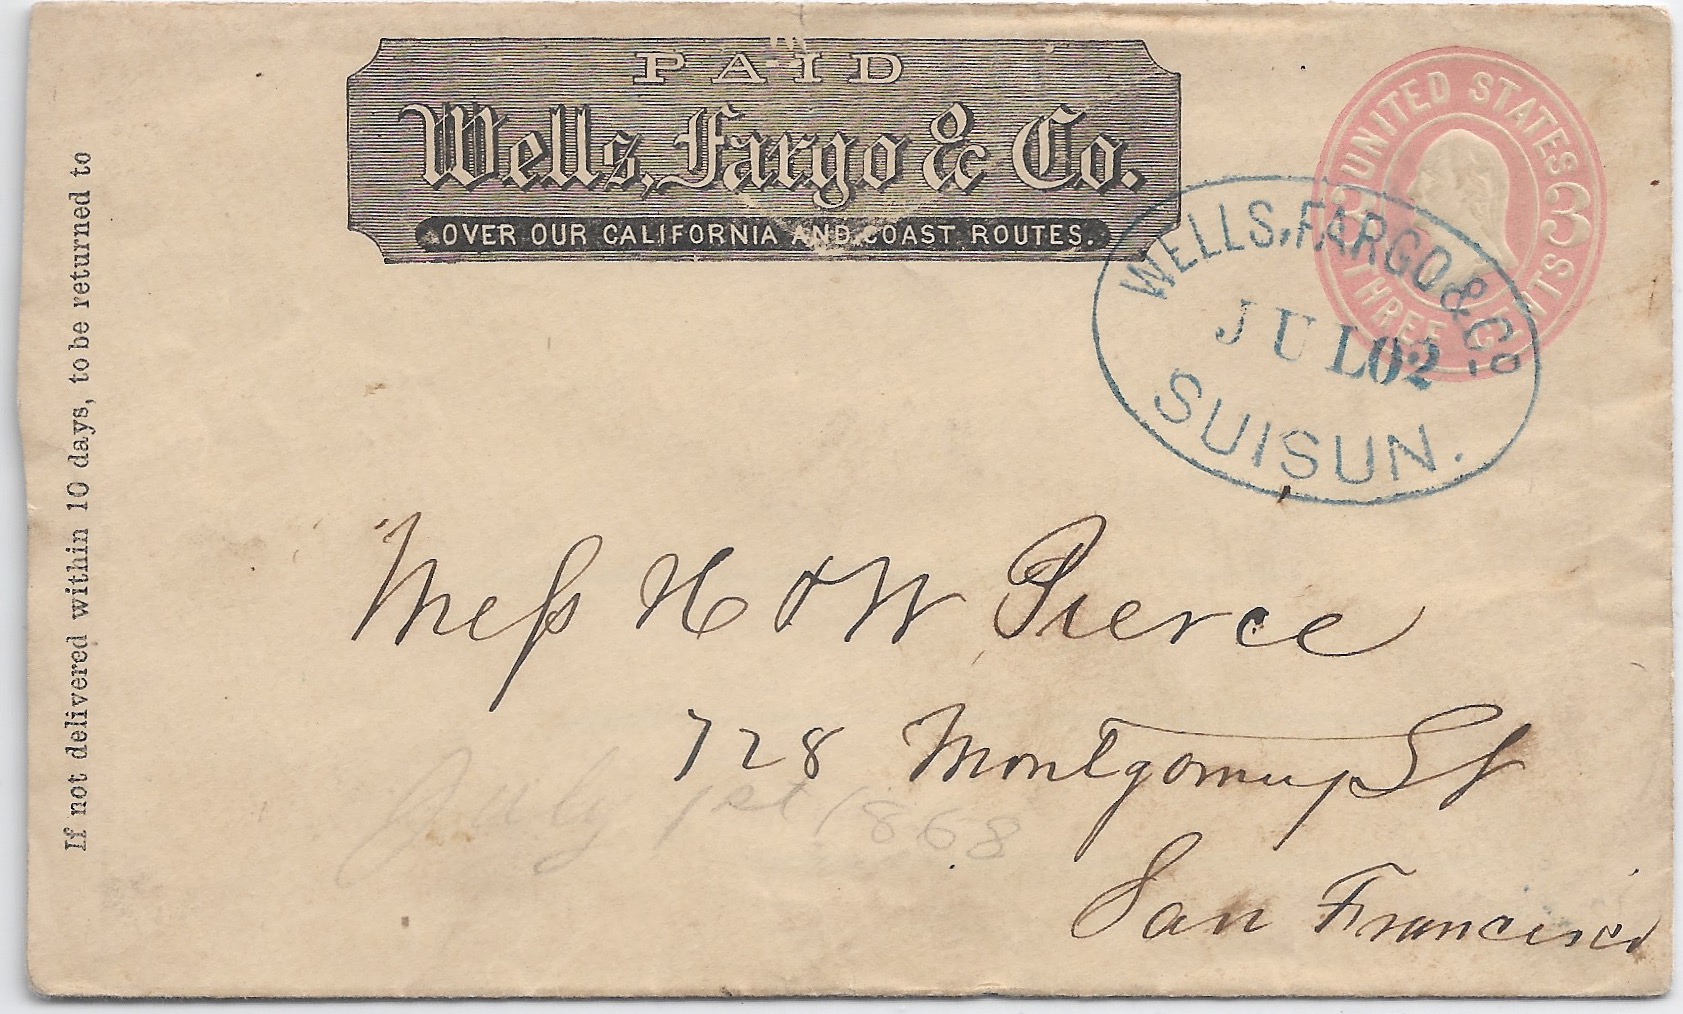 PAID
Wells, Fargo & Co.
OVER OUR CALIFORNIA AND COAST ROUTES.
UNITED STATES
3 3
THREE CENTS
WELLS, FARGO & Co.
JUL 02
SUISUN.
If not delivered within 10 days, to be returned to
Mess H & W Pierce
728 Montgomery St
San Francisco
July 1st 1868